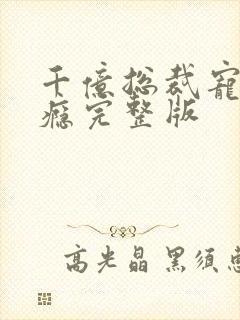 千億總裁寵
癮完整版
高光晶 黑須